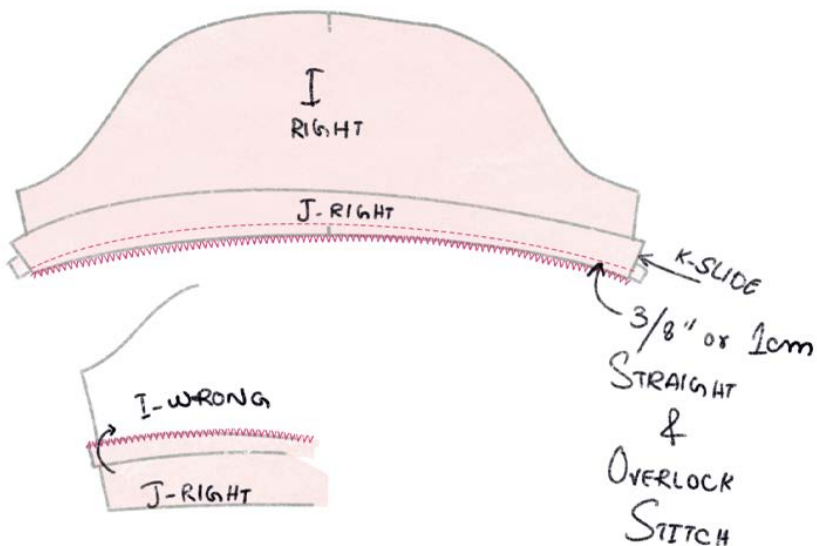 I
RIGHT
J-RIGHT
K-SLIDE
3/8" or 1cm
STRAIGHT
&
OVERLOCK
STITCH
I-WRONG
J-RIGHT